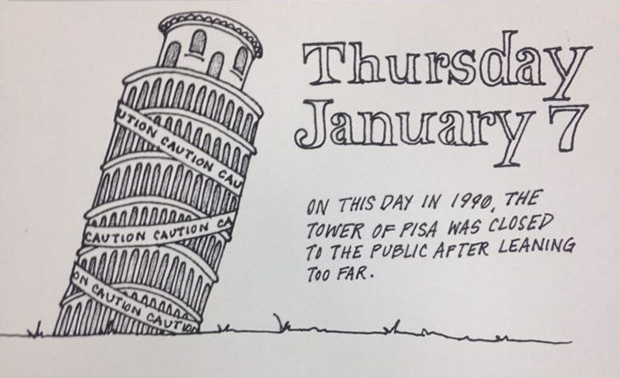 Thursday
January 7
UTION CAUTION CAU
ON THIS DAY IN 1990, THE
TOWER OF PISA WAS CLOSED
CAUTION CAUTION CA
TO THE PUBLIC AFTER LEANING
TOO FAR.
ON CAUTION CAUTION